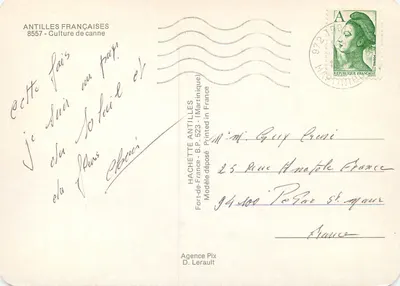 ANTILLES FRANÇAISES
8557 - Culture de canne
Cette fois
je suis au pays
du soleil et
du
HACHETTE ANTILLES
Fort-de-France - B.P. 523 - (Martinique)
Modèle déposé Printed in France
Agence Pix
D. Lerault
A
REPUBLIQUE FRANÇAISE
972
M. Guy
25 Rue Anatole France
94100 St. Maur
France